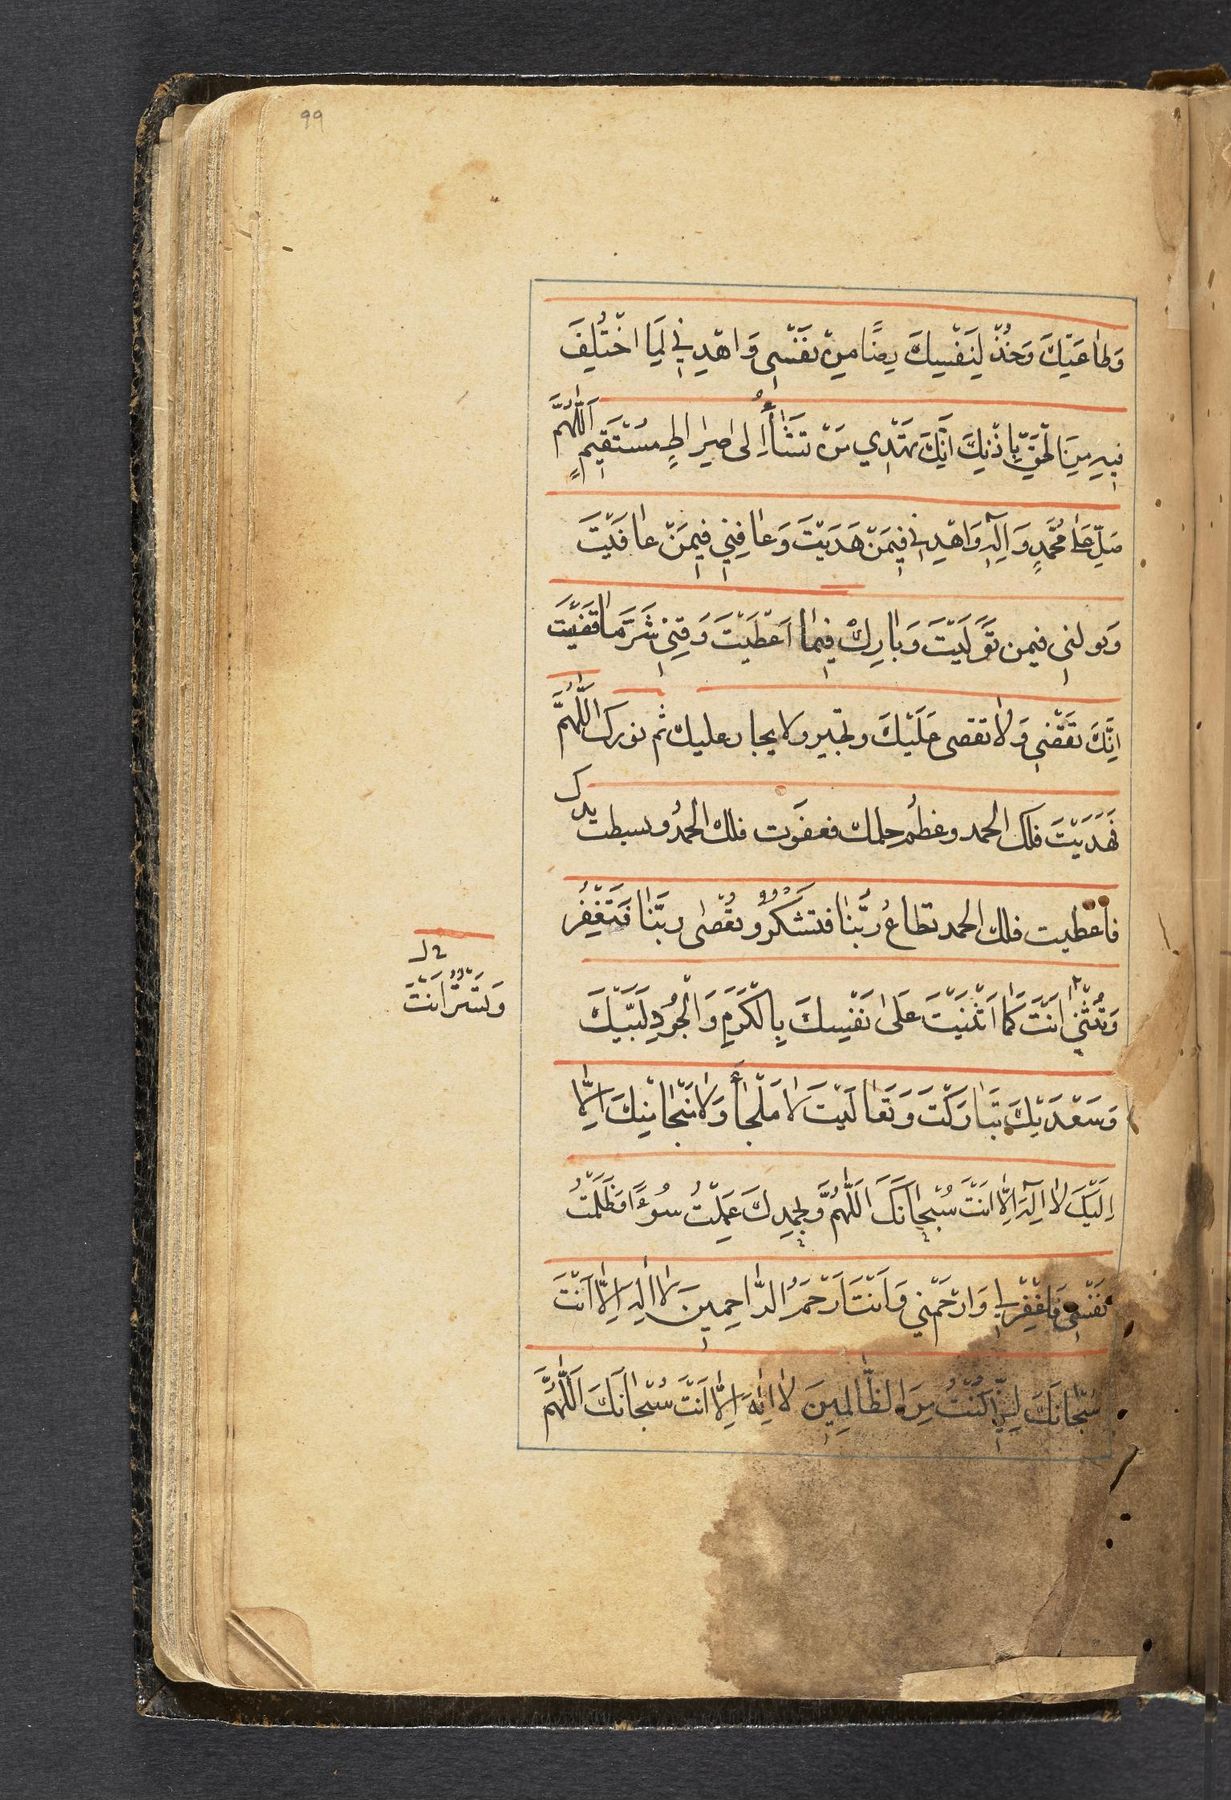 99
وَطَاعَتِكَ وَخُذْ لِنَفْسِكَ رِضًا مِنْ نَفْسِي وَاهْدِنِي لِمَا اخْتُلِفَ
فِيهِ مِنَ الْحَقِّ بِاِذْنِكَ اِنَّكَ تَهْدِي مَنْ تَشَاءُ اِلٰى صِرَاطٍ مُسْتَقِيمٍ اَللّٰهُمَّ
صَلِّ عَلٰى مُحَمَّدٍ وَاٰلِهِ وَاهْدِنِي فِيمَنْ هَدَيْتَ وَعَافِنِي فِيمَنْ عَافَيْتَ
وَتولنى فيمن تَوَلَّيْتَ وَبَارِكْ لِي فِيمَا اَعْطَيْتَ وَقِنِي شَرَّ مَا قَضَيْتَ
اِنَّكَ تَقْضِي وَلَا تقضى عَلَيْكَ وتجير ولا يجار عليك ثم نورك اللّٰهُمَّ
فَهَدَيْتَ فلك الحمد وعظُم حلمك فعفَوت فلك الحمدُ وبسطت يدك
فاعطيت فلك الحمد تطاعُ رَبَّنَا فتَشْكُرُ وَتُعْصٰى ربَّنَا فَتَغْفِرُ
وَتُثْنِي اَنْتَ كَمَا اَثْنَيْتَ عَلٰى نَفْسِكَ بِالْكَرَمِ وَالْجُودِ لَبَّيْكَ
وَسَعْدَيْكَ تَبَارَكْتَ وَتَعَالَيْتَ لَا مَلْجَأَ وَلَا مَنْجَا مِنْكَ اِلَّا
اِلَيْكَ لَا اِلٰهَ اِلَّا اَنْتَ سُبْحَانَكَ اَللّٰهُمَّ وَبِحَمْدِكَ عَمِلْتُ سُوءًا وَظَلَمْتُ
نَفْسِي فَاغْفِرْ لِي وَارْحَمْنِي وَاَنْتَ اَرْحَمُ الرَّاحِمِينَ لَا اِلٰهَ اِلَّا اَنْتَ
سُبْحَانَكَ اِنِّي كُنْتُ مِنَ الظَّالِمِينَ لَا اِلٰهَ اِلَّا اَنْتَ سُبْحَانَكَ اَللّٰهُمَّ
وَتَسْتُرُ اَنْتَ